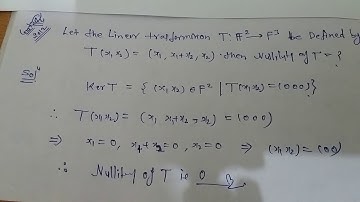 Let the Linear transformation T: F² → F³ be defined by
T(x₁ x₂) = (x₁, x₁+x₂, x₂) . then Nullity of T = ?
Solⁿ
Ker T = { (x₁ x₂) ∈ F² | T(x₁ x₂) = (0 0 0) }
∴ T(x₁ x₂) = (x₁ x₁+x₂, x₂) = (0 0 0)
⇒ x₁ = 0, x₁+x₂ = 0, x₂ = 0 ⇒ (x₁ x₂) = (0 0)
∴ Nullity of T is 0